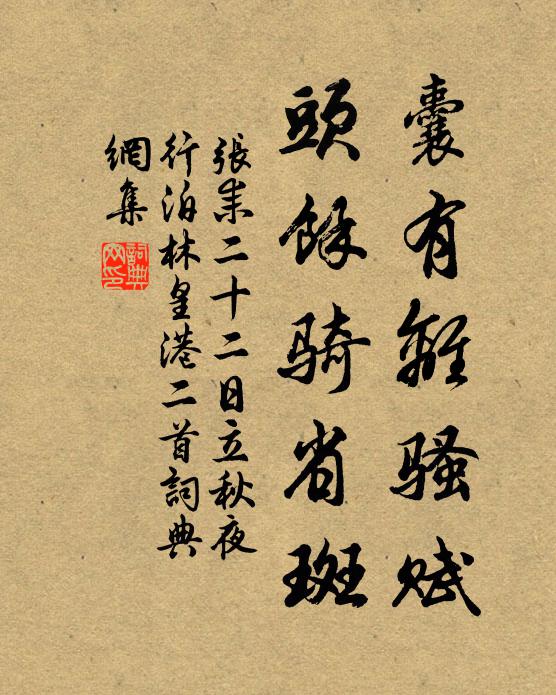 囊有離騷賦
頭餘騎省斑
張耒二十二日立秋夜
行泊林皇港二首詞典
網集
詞典
网印